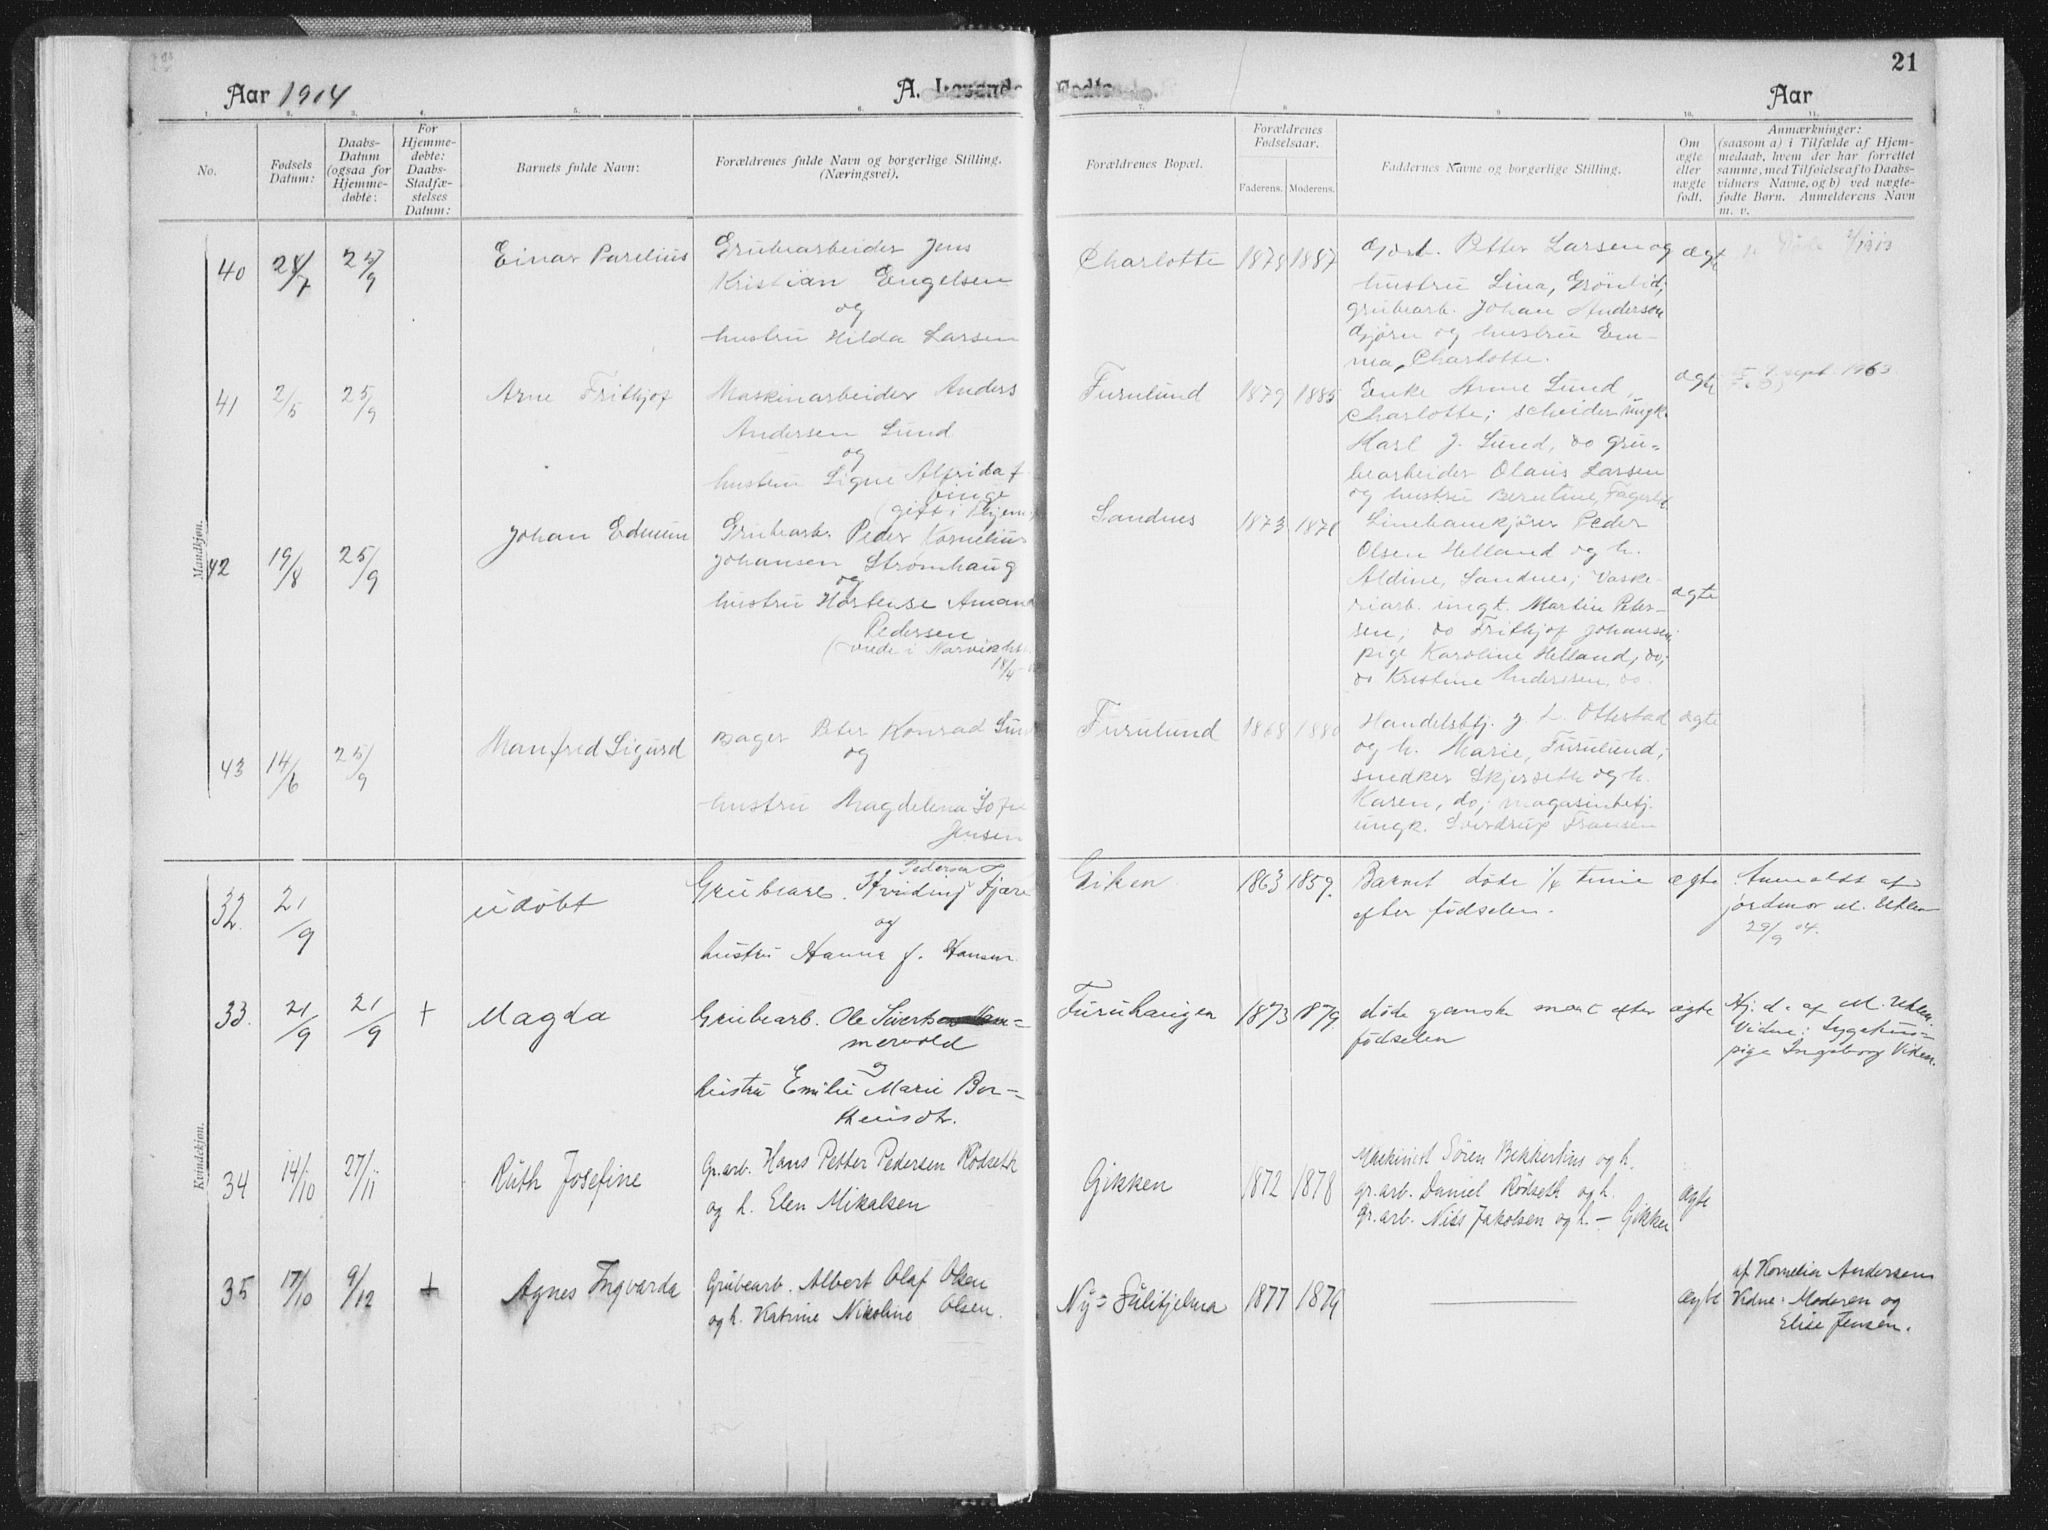 21
Aar 1904
A. Levende Fødte.
Aar
1. 2. 3. 4. 5. 6. 7. 8 9 10. 11.
No.
Fødsels
Datum:
Daabs-
Datum
(ogsaa for
Hjemme-
døbte:
For
Hjemme-
døbte:
Daabs-
Stadfæ-
stelses
Datum:
Barnets fulde Navn:
Forældrenes fulde Navn og borgerlige Stilling.
(Næringsvei).
Forældrenes Bopæl.
Forældrenes
Fødselsaar.
Faderens. Moderens.
Faddernes Navne og borgerlige Stilling.
Om
ægte
eller
nægte
født.
Anmærkninger:
(saasom a) i Tilfælde af Hjem-
medaab, hvem der har forrettet
samme, med Tilføielse af to Daabs-
vidners Navne, og b) ved nægte-
fødte Børn. Anmelderens Navn
m. v.
Mandkjøn.
40 28/7 25/9 Einar Parelius
Grubearbeider Jens
Kristian Engelsen
og
hustru Hilda Larsen
Charlotte 1879 1887
Petter Larsen og
hustru Lina, Grönlid;
grubearb. Johan Anderson
Gjörn og hustru Em-
ma, Charlotte.
ægte
41 2/5 25/9 Arne Frithjof
Maskinarbeider Anders
Andersen Lund
og
hustru Signe Alfrida f.
Binge
(gift i Hjem
Furulund 1879 1885
Enke Anne Lund,
Charlotte; scheider ungk.
Karl J. Lund, do gru-
bearbeider Olaus Larsen
og hustru Berntine, Fagerli
ægte
7. sept. 1963
42 19/8 25/9 Johan Edmun
Grubearb. Peder Kornelius
Johansen Strömhaug
og
hustru Hortense Aman
Pedersen
(viede i Narvik
18/4
Sandnes 1873 1878
Linebanekjører Peder
Olsen Helland og h.
Aldine, Sandnes; Vaske-
riarb. ungk. Martin Peter-
sen; do Frithjof Johansen;
pige Karoline Helland, do;
do Kristine Andersen, do.
ægte
43 14/6 25/9 Manfred Sigurd
Bager Peter Konrad Lund
og
hustru Magdelena Sofie
Jensen
Furulund 1868 1880
Handelsbtj. J. L. Ottestad
og h. Marie, Furulund;
snedker Skjerseth og h.
Karen, do; magasinbetj.
ungk. Sverdrup Fransen
ægte
Kvindekjøn.
32. 21/9 udöbt
Pedersen
Grubearb. Kvidung Fjære
og
hustru Hanna f. Hansen.
Giken 1863 1859.
Barnet döde 1/4 time
efter födselen.
ægte
Anmeldt af
jordmor M. Uhlen
29/9 04.
33. 21/9 21/9 + Magda
Grubearb. Ole Sivert Ham=
mervold
og
hustru Emilie Marie Bor=
theusdtr.
Furuhaugen 1873 1879.
döde ganske snart efter
födselen
ægte
Hj. d. af M. Uhlen.
Vidne: Sygehus=
pige Ingeborg Viken.
34 14/10 27/11 Ruth Josefine
Gr.arb. Hans Petter Pedersen Rödseth
og h. Elen Mikalsen
Gikken 1872 1878
Maskinist Sören Bekkertins og h.
gr.arb. Daniel Rödseth og h.
Gr.arb. Nils Jakobsen og h. – Gikken
ægte
35 17/10 9/12 + Agnes Ingvarda
Grubearb. Albert Olaf Olsen
og h. Katrine Nikoline Olsen.
Ny=Sulitjelma 1877 1879
ægte
af Kornelia Andersen
Vidne: Moderen og
Elise Jensen.